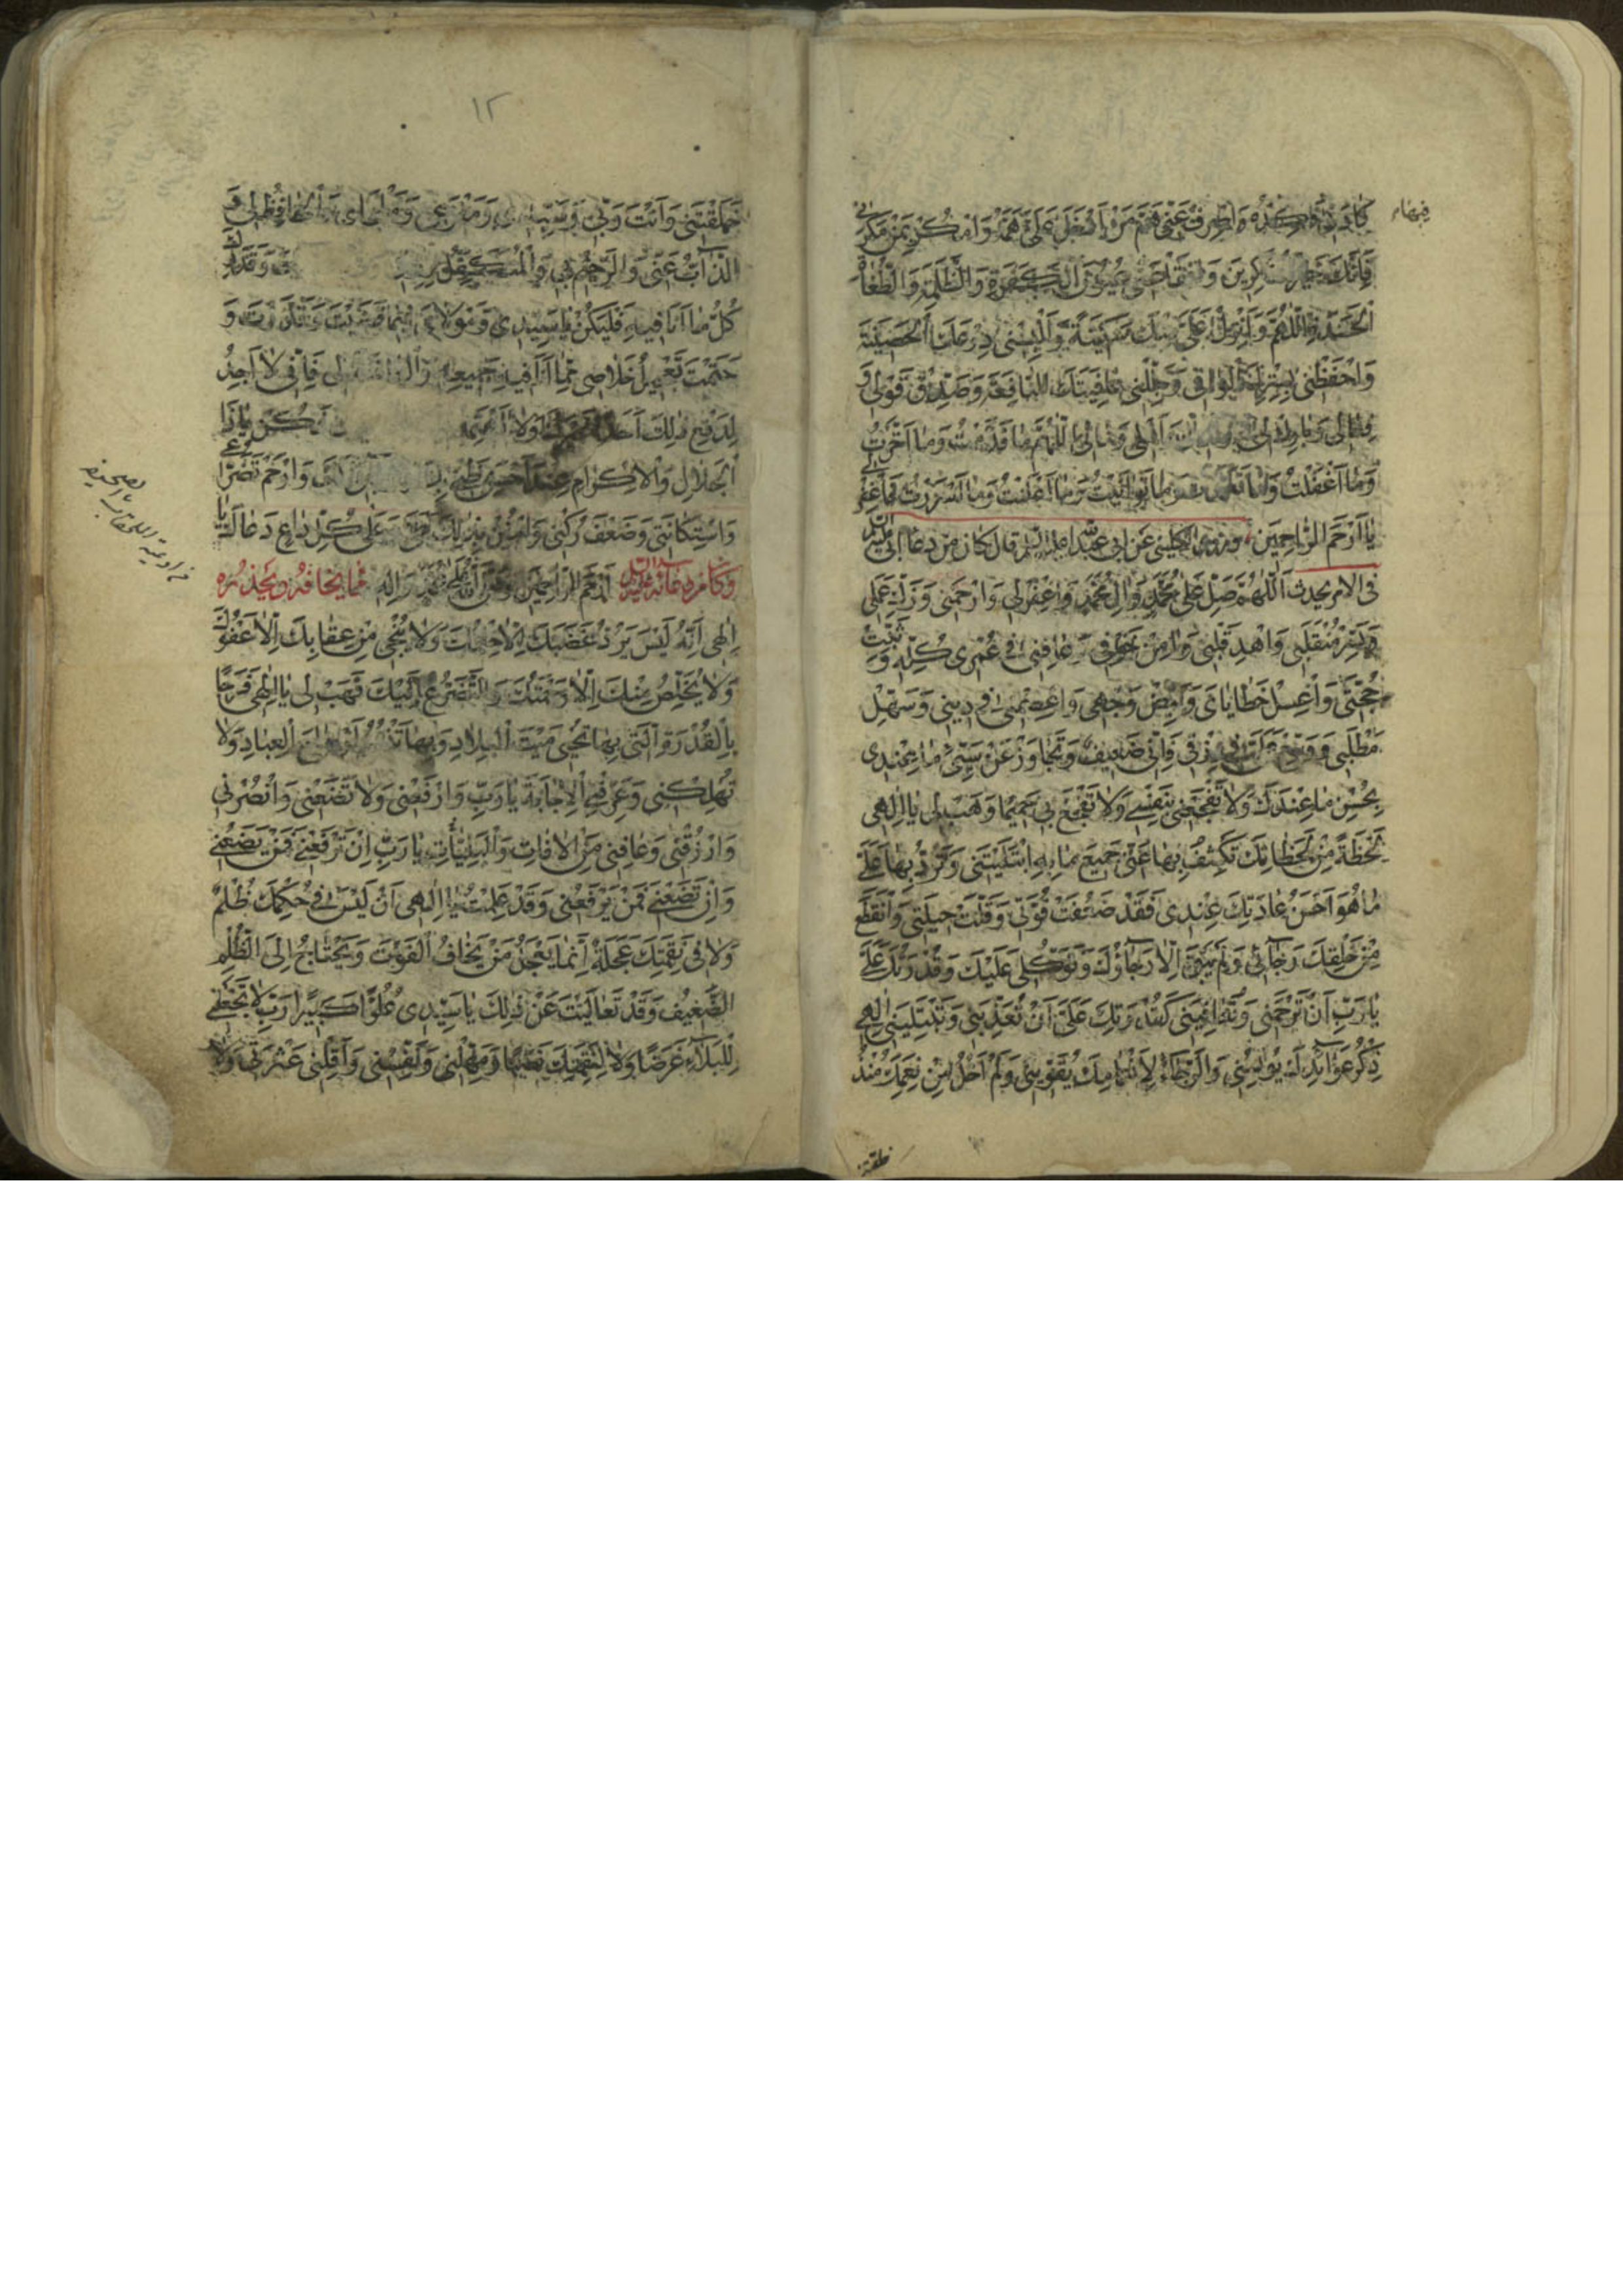 فيهاء
كادني واصرف عني هم من ادخل علي همه وامكر بمن مكر بي
فانك خير الماكرين وافقأ عني عيون الكفرة والظلمة والطغاة
الحسدة اللهم وانزل علي منك سكينة والبسني درعك الحصينة
واحفظني بسترك الواقي وجللني عافيتك النافعة وصدق قولي و
فعالي وبارك لي اهلي ومالي اللهم ما قدمت وما اخرت
وما اغفلت وما تعمدت وما توانيت وما اعلنت وما اسررت فاغفر لي
يا ارحم الراحمين وروى الكليني عن ابي عبد الله عليه السلم قال كان من دعاء ابي عليه السلم
في الامر يحدث اللهم صل على محمد وال محمد واغفر لي وارحمني وزك عملي
ويسر منقلبي واهد قلبي وامن خوفي وعافني في عمري كله وثبت
حجتي واغسل خطاياي وبيض وجهي واعصمني في ديني وسهل
مطلبي ووسع علي في رزقي فاني ضعيف وتجاوز عن سيئ ما عندي
بحسن ما عندك ولا تفجعني بنفسي ولا تفجع بي حميما وهب لي يا الهي
لحظة من لحظاتك تكشف بها عني جميع ما به ابتليتني وترد بها علي
ما هو احسن عاداتك عندي فقد ضعفت قوتي وقلت حيلتي وانقطع
من خلقك رجائي ولم يبق الا رجاؤك وتوكلي عليك وقدرتك علي
يا رب ان ترحمني وتعافيني كقدرتك علي ان تعذبني وتبتليني الهي
ذكر عوائدك يؤنسني والرجاء لانعامك يقويني ولم اخل من نعمك منذ
خلقتني
١٢
خلقتني وانت ربي وسيدي ومفزعي وملجاي والحافظ لي و
الذاب عني والرحيم بي والمتكفل وقدرك
كل ما انا فيه فليكن يا سيدي ومولاي فيما قضيت وقدرت و
حتمت تعجيل خلاصي مما انا فيه جميعه فاني لا اجد
لدفع ذلك احدا ولا اعتمد فكن يا ذا
الجلال والاكرام عند احسن ظني بك وارحم تضرعي
واستكانتي وضعف ركني وامنن بذلك علي وعلى كل داع دعاك يا
ارحم الراحمين وصلى الله على محمد واله وكان من دعائه عليه السلم مما يخافه ويحذره
الهي انه ليس يرد غضبك الا حلمك ولا ينجي من عقابك الا عفوك
ولا يخلص منك الا رحمتك والتضرع اليك فهب لي يا الهي فرجا
بالقدرة التي بها تحيي ميت البلاد وبها تنشر ارواح العباد ولا
تهلكني وعرفني الاجابة يا رب وارفعني ولا تضعني وانصرني
وارزقني وعافني من الافات والبليات يا رب ان ترفعني فمن يضعني
وان تضعني فمن يرفعني وقد علمت يا الهي ان ليس في حكمك ظلم
ولا في نقمتك عجلة انما يعجل من يخاف الفوت ويحتاج الى الظلم
الضعيف وقد تعاليت عن ذلك يا سيدي علوا كبيرا رب لا تجعلني
للبلاء غرضا ولا لنقمتك نصبا ومهلني ونفسني واقلني عثرتي ولا
من ادعية الملحقات بالصحيفة